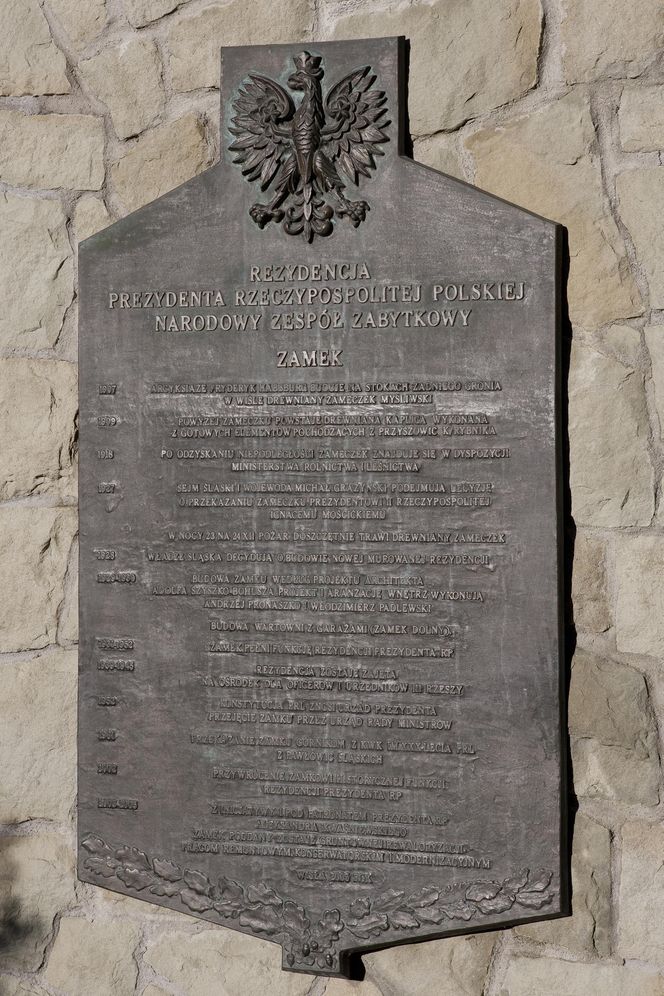 REZYDENCJA
PREZYDENTA RZECZYPOSPOLITEJ POLSKIEJ
NARODOWY ZESPÓŁ ZABYTKOWY
ZAMEK
1907 ARCYKSIĄŻĘ FRYDERYK HABSBURG BUDUJE NA STOKACH ZADNIEGO GRONIA
W WIŚLE DREWNIANY ZAMECZEK MYŚLIWSKI
1909 POWYŻEJ ZAMECZKU POWSTAJE DREWNIANA KAPLICA WYKONANA
Z GOTOWYCH ELEMENTÓW POCHODZĄCYCH Z PRZYSZOWIC K/RYBNIKA
1918 PO ODZYSKANIU NIEPODLEGŁOŚCI ZAMECZEK ZNAJDUJE SIĘ W DYSPOZYCJI
MINISTERSTWA ROLNICTWA I LEŚNICTWA
1927 SEJM ŚLĄSKI I WOJEWODA MICHAŁ GRAŻYŃSKI PODEJMUJĄ DECYZJĘ
O PRZEKAZANIU ZAMECZKU PREZYDENTOWI II RZECZYPOSPOLITEJ
IGNACEMU MOŚCICKIEMU
W NOCY 23 NA 24 XII POŻAR DOSZCZĘTNIE TRAWI DREWNIANY ZAMECZEK
1928 WŁADZE ŚLĄSKA DECYDUJĄ O BUDOWIE NOWEJ MUROWANEJ REZYDENCJI
BUDOWA ZAMKU WEDŁUG PROJEKTU ARCHITEKTA
ADOLFA SZYSZKO-BOHUSZA PROJEKT I ARANŻACJĘ WNĘTRZ WYKONUJĄ
ANDRZEJ PRONASZKO I WŁODZIMIERZ PADLEWSKI
BUDOWA WARTOWNI Z GARAŻAMI (ZAMEK DOLNY).
ZAMEK PEŁNI FUNKCJĘ REZYDENCJI PREZYDENTA RP
1939-1945 REZYDENCJA ZOSTAJE ZAJĘTA
NA OŚRODEK DLA OFICERÓW I URZĘDNIKÓW III RZESZY
1952 KONSTYTUCJA PRL ZNOSI URZĄD PREZYDENTA
PRZEJĘCIE ZAMKU PRZEZ URZĄD RADY MINISTRÓW
1981 PRZEKAZANIE ZAMKU GÓRNIKOM Z KWK IM. XXX-LECIA PRL
Z PAWŁOWIC ŚLĄSKICH
2002 PRZYWRÓCENIE ZAMKOWI HISTORYCZNEJ FUNKCJI
REZYDENCJI PREZYDENTA RP
Z INICJATYWY I POD PATRONATEM PREZYDENTA RP
ALEKSANDRA KWAŚNIEWSKIEGO
ZAMEK PODDANY ZOSTAJE GRUNTOWNEJ REWALORYZACJI,
PRACOM REMONTOWYM, KONSERWATORSKIM I MODERNIZACYJNYM
WISŁA 2005 ROK